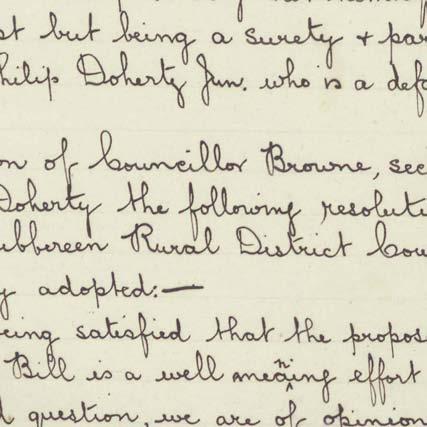 st but being a surety + par
hilip Doherty Jun. who is a defa
on of Councillor Browne, sec
Doherty the following resoluti
ibbereen Rural District Cou
y adopted:—
eing satisfied that the propos
Bill is a well meaning effort
d question, we are of opinion